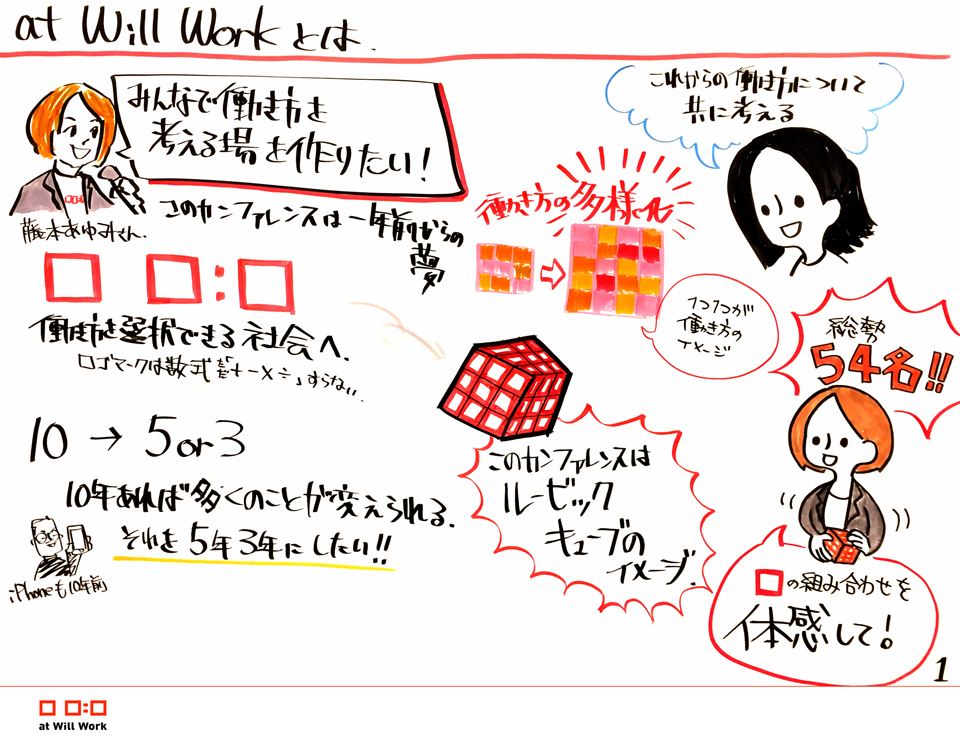 at Will Work とは.
みんなで働き方を
考える場を作りたい!
藤本あゆみさん.
このカンファレンスは一年前からの
夢
働き方を選択できる社会へ.
ロゴマークは数式 だけど「+-×÷」すらない.
10 → 5 or 3
10年あれば多くのことが変えられる.
それを5年3年にしたい!!
iPhoneも10年前
これからの働き方について
共に考える
働き方の多様化
1つ1つが
働き方の
イメージ
総勢
54名!!
このカンファレンスは
ルービック
キューブの
イメージ.
□の組み合わせを
体感して!
1
at Will Work